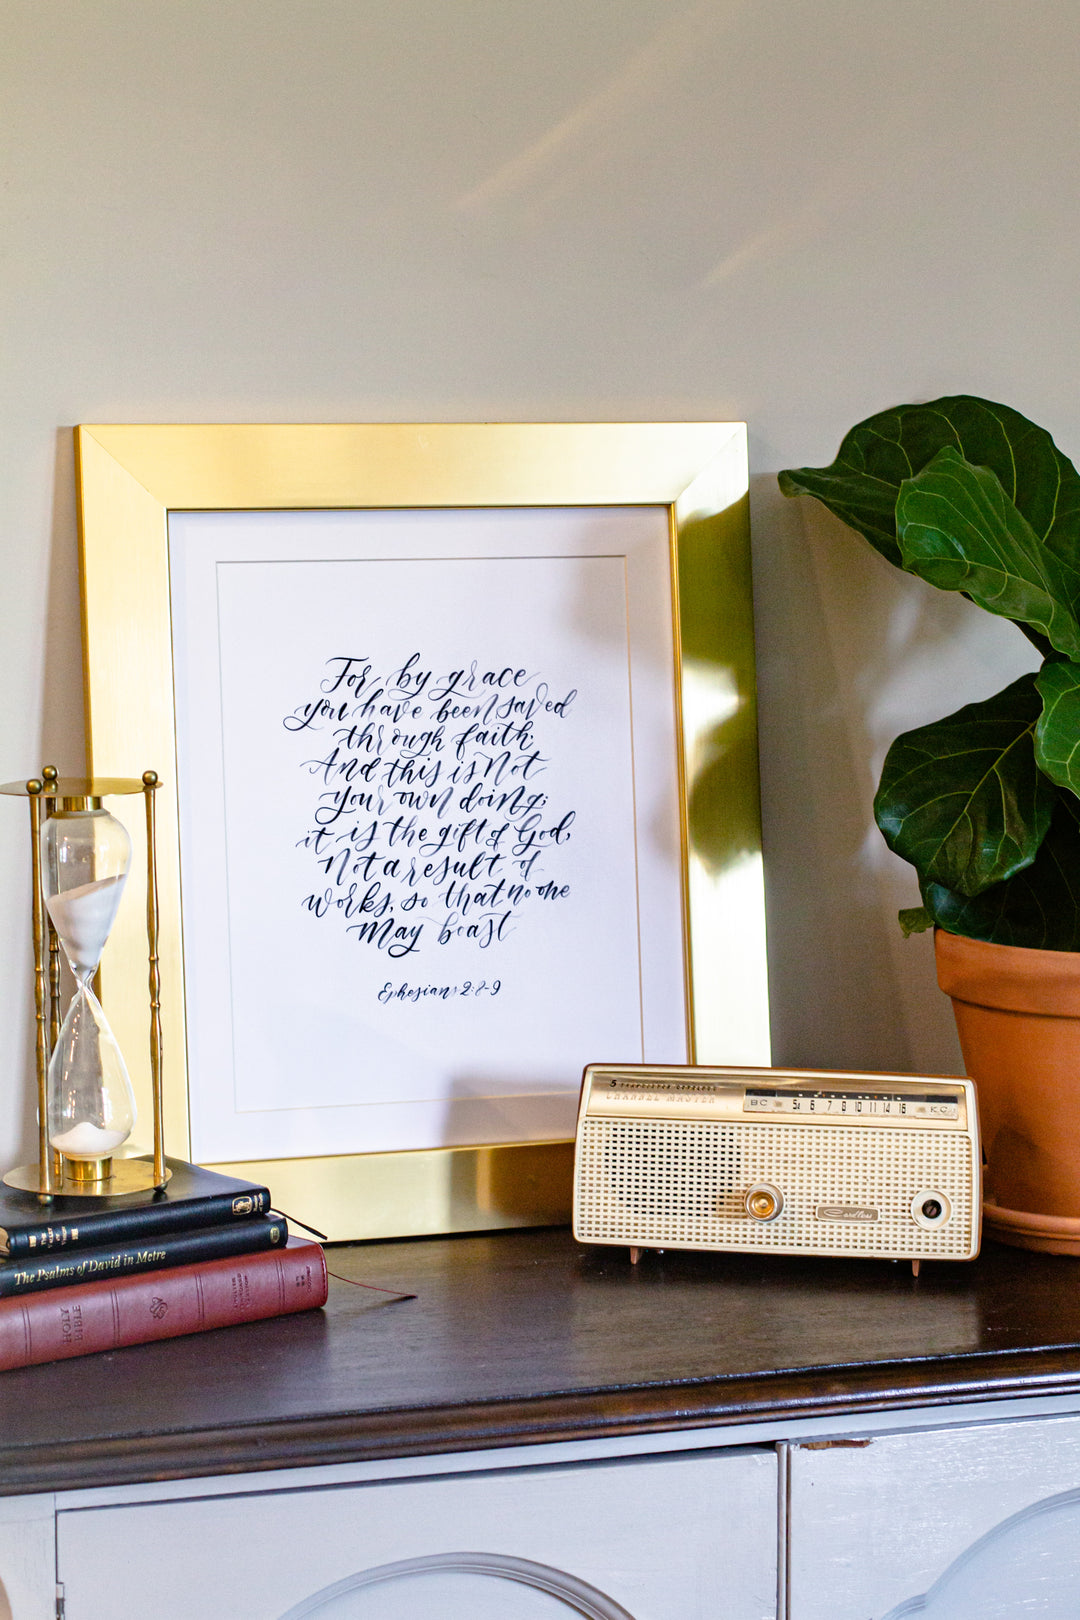 For by grace
you have been saved
through faith.
And this is Not
your own doing;
it is the gift of God,
Not a result of
works, so that no one
May boast
Ephesians 2:8-9
CHANNEL MASTER
BC 5½ 6 7 8 10 11 14 16 KC
Cordless
The Psalms of David in Metre
HOLY
BIBLE